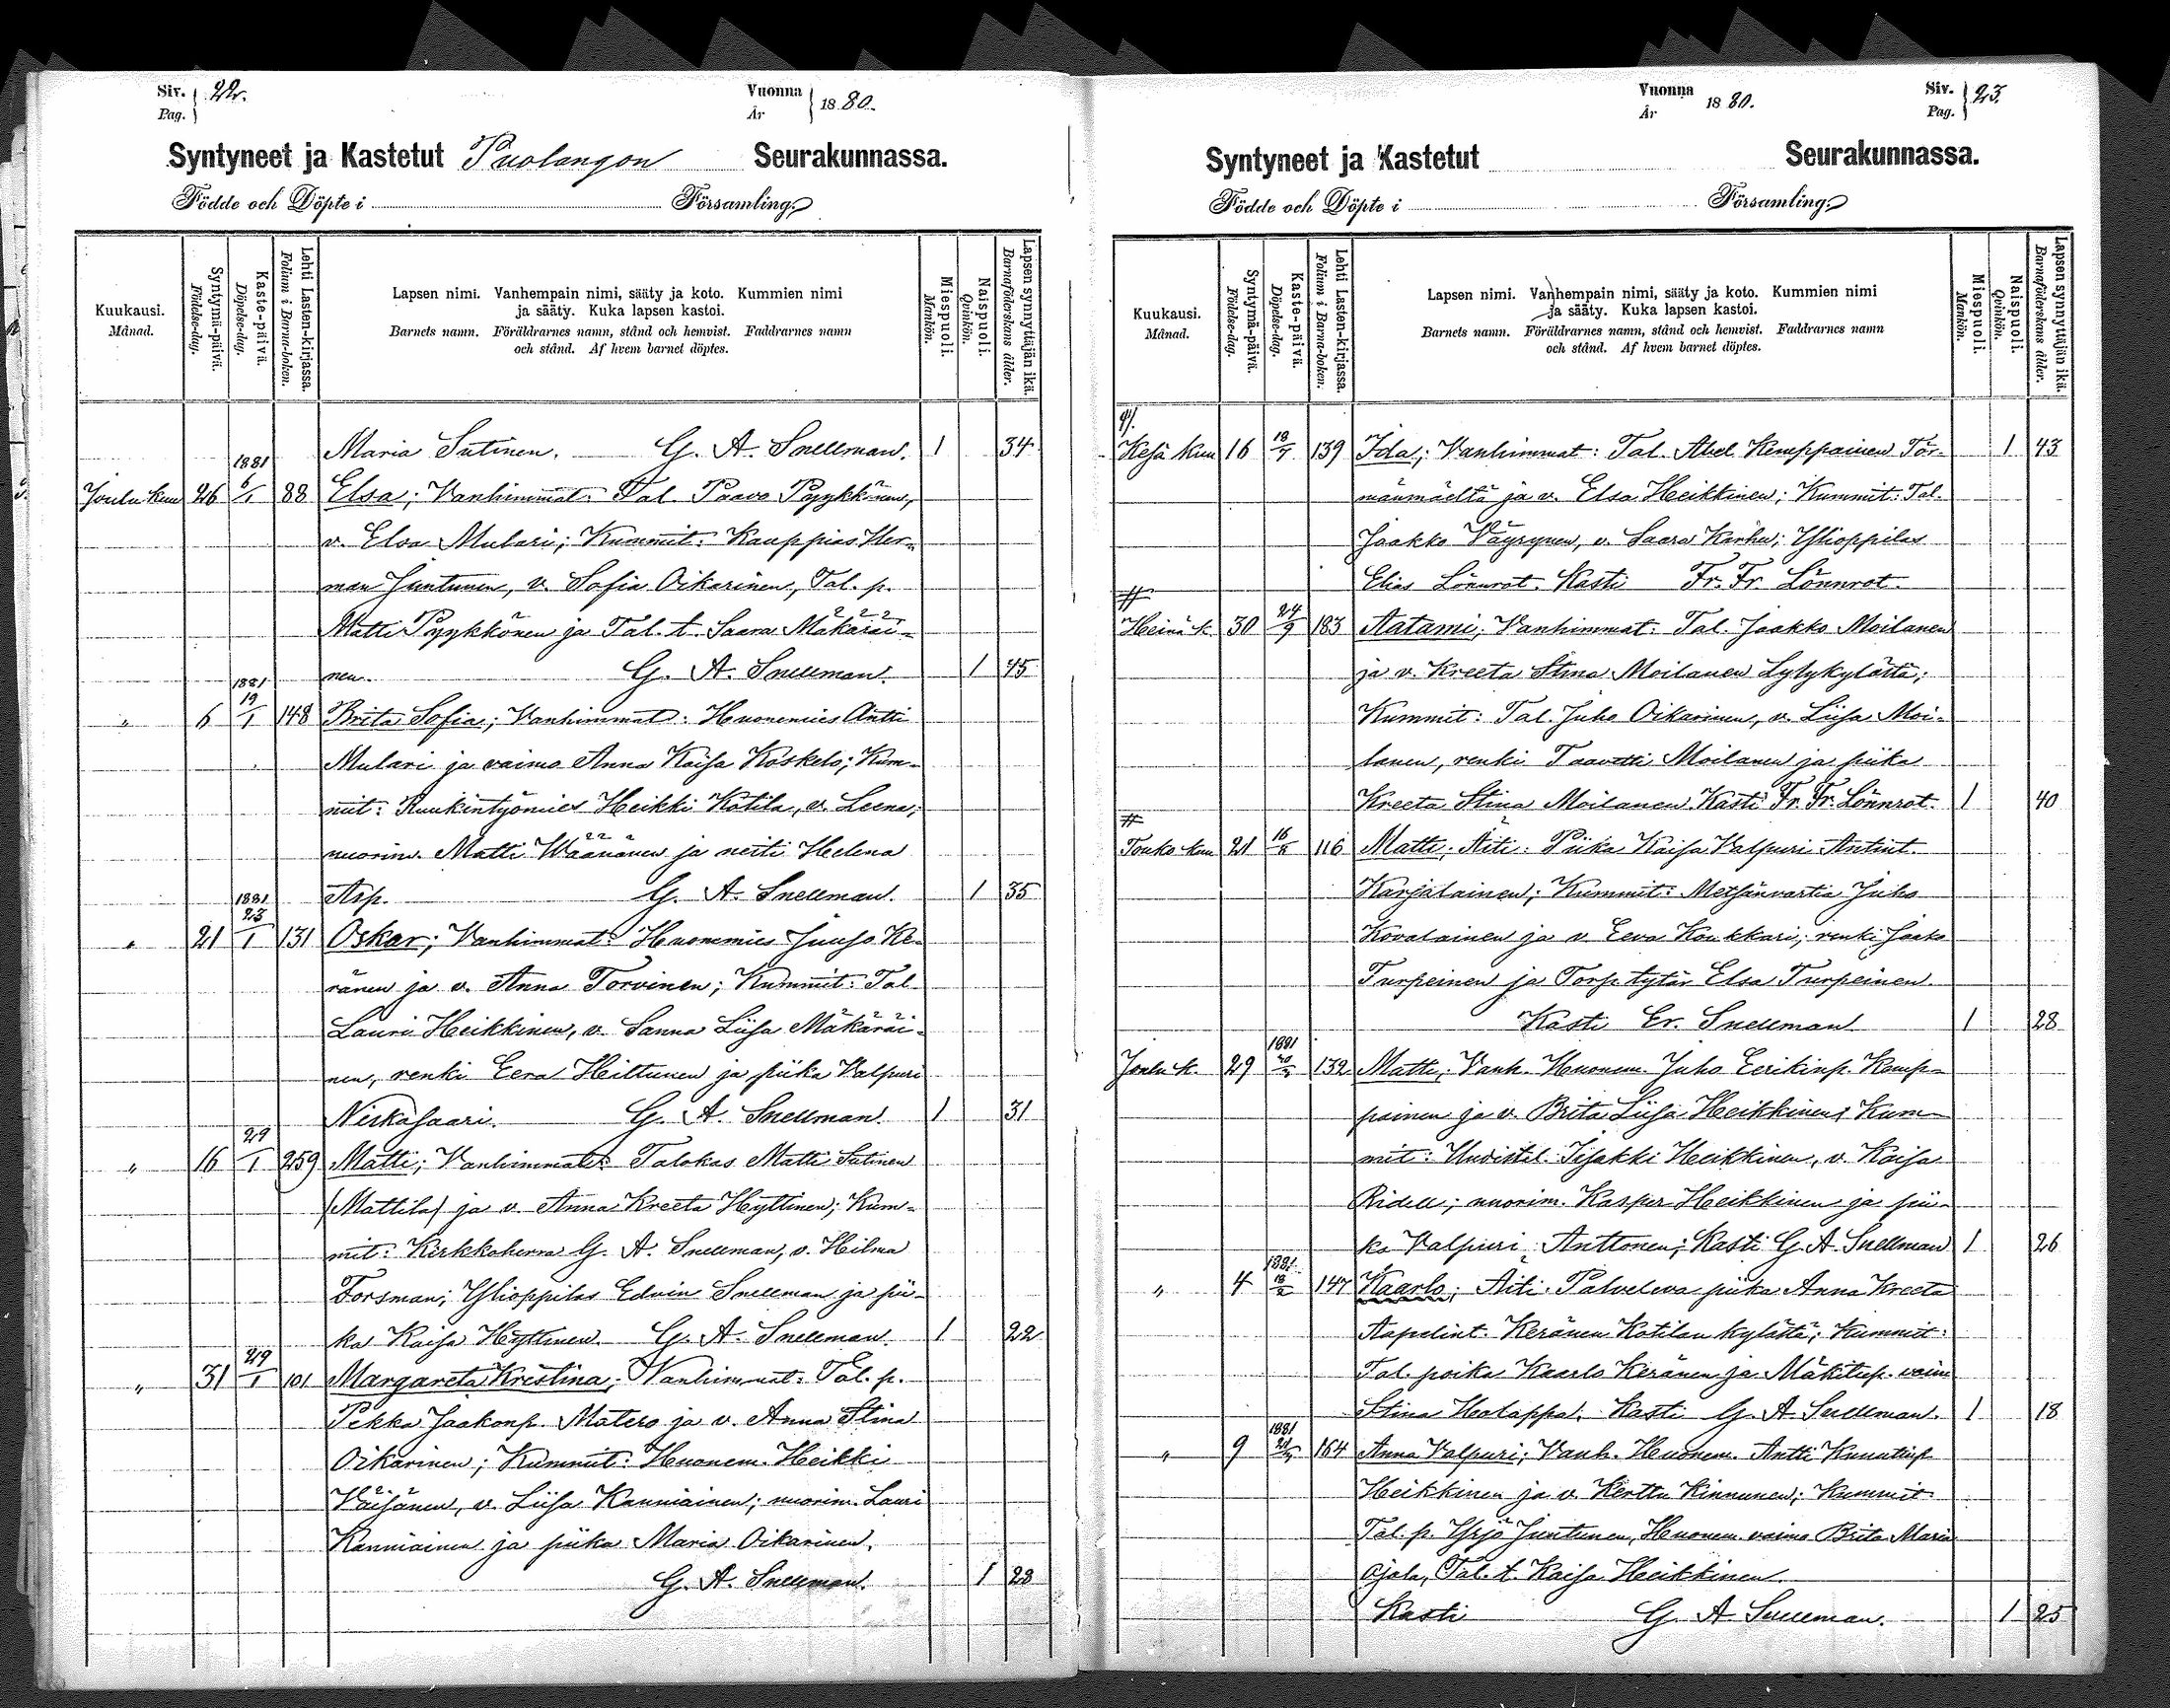 Siv. Pag. 22.
Vuonna År 1880.
Syntyneet ja Kastetut Puolangon Seurakunnassa.
Födde och Döpte i Församling.
Kuukausi. Månad.
Syntymä-päivä. Födelse-dag.
Kaste-päivä. Döpelse-dag.
Lehti Lasten-kirjassa. Folium i Barna-boken.
Lapsen nimi. Vanhempain nimi, sääty ja koto. Kummien nimi
ja sääty. Kuka lapsen kastoi.
Barnets namn. Föräldrarnes namn, stånd och hemvist. Faddrarnes namn
och stånd. Af hvem barnet döptes.
Miespuoli. Mankön.
Naispuoli. Qvinkön.
Lapsen synnyttäjän ikä. Barnaföderskans ålder.
Maria Sutinen. G. A. Snellman. 1 34
Joulu kuu 26 1881 6/1 88 Elsa; Vanhimmat: Tal. Paavo Pyykkönen,
v. Elsa Mulari; Kummit: Kauppias Her-
man Juntunen, v. Sofia Oikarinen, Tal. p.
Matti Pyykkönen ja Tal. t. Saara Mäkäräi-
nen. G. A. Snellman. 1 45
" 6 1881 19/1 148 Brita Sofia; Vanhimmat: Huonemies Antti
Mulari ja vaimo Anna Kaisa Koskelo; Kum-
mit: Ruukintyömies Heikki Kotila, v. Leena;
nuorim. Matti Wäänänen ja neiti Helena
Asp. G. A. Snellman. 1 35
" 21 1881 23/1 131 Oskar; Vanhimmat: Huonemies Juuso Ke-
ränen ja v. Anna Torvinen; Kummit: Tal.
Lauri Heikkinen, v. Sanna Liisa Mäkäräi-
nen, renki Eera Heittunen ja piika Valpuri
Niskasaari. G. A. Snellman. 1 31
" 16 29/1 259 Matti; Vanhimmat: Talokas Matti Sutinen
(Mattila) ja v. Anna Kreeta Hyttinen; Kum-
mit: Kirkkoherra G. A. Snellman, v. Hilma
Forsman; Ylioppilas Edvin Snellman ja pii-
ka Kaisa Hyttinen. G. A. Snellman. 1 22
" 31 29/1 101 Margareta Kristina; Vanhimmat: Tal. p.
Pekka Jaakonp. Matero ja v. Anna Stina
Oikarinen; Kummit: Huonem. Heikki
Väisänen, v. Liisa Kanniainen; nuorim. Lauri
Kanniainen ja piika Maria Oikarinen.
G. A. Snellman. 1 28
Vuonna År 1880.
Siv. Pag. 23.
Syntyneet ja Kastetut Seurakunnassa.
Födde och Döpte i Församling.
Kuukausi. Månad.
Syntymä-päivä. Födelse-dag.
Kaste-päivä. Döpelse-dag.
Lehti Lasten-kirjassa. Folium i Barna-boken.
Lapsen nimi. Vanhempain nimi, sääty ja koto. Kummien nimi
ja sääty. Kuka lapsen kastoi.
Barnets namn. Föräldrarnes namn, stånd och hemvist. Faddrarnes namn
och stånd. Af hvem barnet döptes.
Miespuoli. Mankön.
Naispuoli. Qvinkön.
Lapsen synnyttäjän ikä. Barnaföderskans ålder.
Kesä kuu 16 18/7 139 Ida; Vanhimmat: Tal. Abel Kemppainen Tör-
mänmäeltä ja v. Elsa Heikkinen; Kummit: Tal.
Jaakko Väyrynen, v. Saara Karhu; Ylioppilas
Elias Lönnrot. Kasti Fr. Fr. Lönnrot. 1 43
Heinä k. 30 24/9 183 Aatami; Vanhimmat: Tal. Jaakko Moilanen
ja v. Kreeta Stina Moilanen Lylykylästä;
Kummit: Tal. Juho Oikarinen, v. Liisa Moi-
lanen, renki Taavetti Moilanen ja piika
Kreeta Stina Moilanen. Kasti Fr. Fr. Lönnrot. 1 40
Touko kuu 21 116 Matti; Äiti: Piika Kaisa Valpuri Antint.
Karjalainen; Kummit: Metsänvartia Juho
Kovalainen ja v. Eeva Koukkari; renki Jaako
Turpeinen ja Torp. tytär Elsa Turpeinen.
Kasti Er. Snellman. 1 28
Joulu k. 29 1881 132 Matti; Vanh. Huonem. Juho Eerikinp. Kemp-
painen ja v. Brita Liisa Heikkinen; Kum-
mit: Uudistal. Iisakki Heikkinen, v. Kaisa
Ridell; nuorim. Kasper Heikkinen ja pii-
ka Valpuri Anttonen; Kasti G. A. Snellman 1 26
" 4 1881 18/2 147 Kaarlo; Äiti: Palveleva piika Anna Kreeta
Aapelint. Keränen Kotilan kylästä; Kummit:
Tal. poika Kaarlo Keränen ja Mäkitup. vaim
Stina Holappa. Kasti G. A. Snellman. 1 18
" 9 1881 164 Anna Valpuri; Vanh. Huonem. Antti Knuutinp
Heikkinen ja v. Kerttu Kinnunen; Kummit
Tal. p. Yrjö Juntunen, Huonem. vaimo Brita Maria
Ajala, Tal. t. Kaisa Heikkinen.
Kasti G. A. Snellman. 1 25